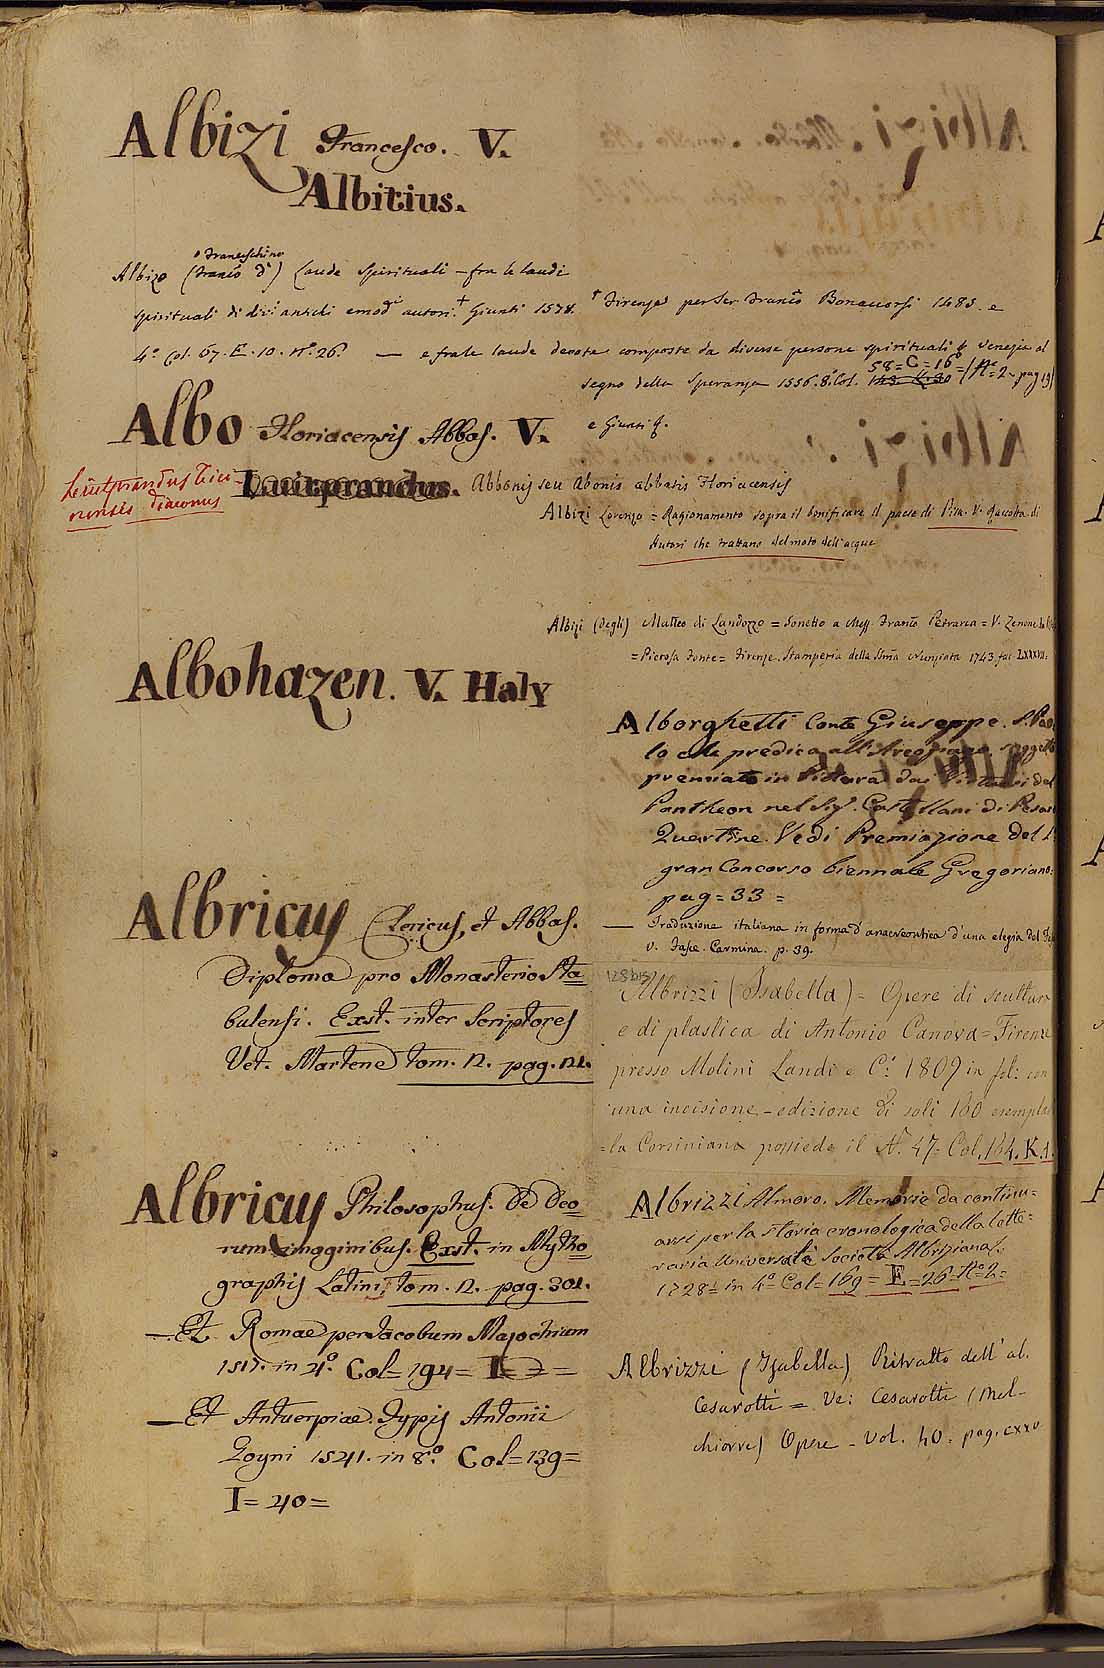 Albizi Francesco. V.
Albitius.
o Franceschino
Albizo (Franco d') Laude Spirituali – fra le laudi
spirituali di divi antichi e modi autori. † Giunti 1578.
4.º Col. 67. E. 10. nº 26. — e fra le laude devote composte da diverse persone spirituali Venezia al
† Firenze per Ser Franco Bonaccorsi 1485. e
segno della Speranza 1556. 8.º Col. 58 = C = 16 = (Nº 2 - pag 19)
e Giunti
Albo Floriacensis Abbas. V.
Luitprandus.
Leiutprandus Tici-
nensis diaconus
Abbonis seu Abonis abbatis Floriacensis
Albizi Lorenzo = Ragionamento sopra il bonificare il paese di Pisa. V. Raccolta di
Autori che trattano del moto dell'acque
Albizi (degli) Matteo di Landozzo = Sonetto a Mess. Franco Petrarca = V. Zenone
= Pietosa Fonte = Firenze. Stamperia della SSma Nunziata 1743.
Albohazen. V. Haly
Alborghetti Conte Giuseppe. S. Pao
lo che predica all'Areopago. soggetto
premiato in Pittura dai Virtuosi del
Pantheon nel Sig. Castellani di Pesaro
Quartine. Vedi Premiazione del 1º
gran Concorso biennale Gregoriano:
pag = 33 =
— Traduzione italiana in forma d'anacreontica d'una elegia del
v. Carmina. p. 39.
Albricus Clericus, et Abbas.
Diploma pro Monasterio Sta
bulensi. Exst. inter Scriptores
Vet. Martene tom. 2. pag. 121.
128 bis
Albrizzi (Isabella) = Opere di scultura
e di plastica di Antonio Canova = Firenze
presso Molini Landi e C.i 1809 in fol: con
una incisione – edizione di soli 160 esemplari
= la Corsiniana possiede il Nº 47 = Col. 164. K. 1.
Albricus Philosophus. De Deo
rum imaginibus. Exst. in Mytho
graphis Latinis, tom. 2. pag. 301.
— Et Romae per Jacobum Mazochium
1517. in 4º. Col = 194 = I = 2 =
— Et Antuerpiae. Typis Antonii
Goyni 1541. in 8º. Col = 139 =
I = 40 =
Albrizzi Almoro. Memorie da continu=
arsi per la storia cronologica della lette=
raria Universale Società Albriziana.
1728 = in 4º Col = 169 = E = 26 - Nº 2 =
Albrizzi (Isabella) Ritratto dell' ab.
Cesarotti = Ve: Cesarotti (Mel-
chiorre) Opere – Vol. 40. pag. cxxv